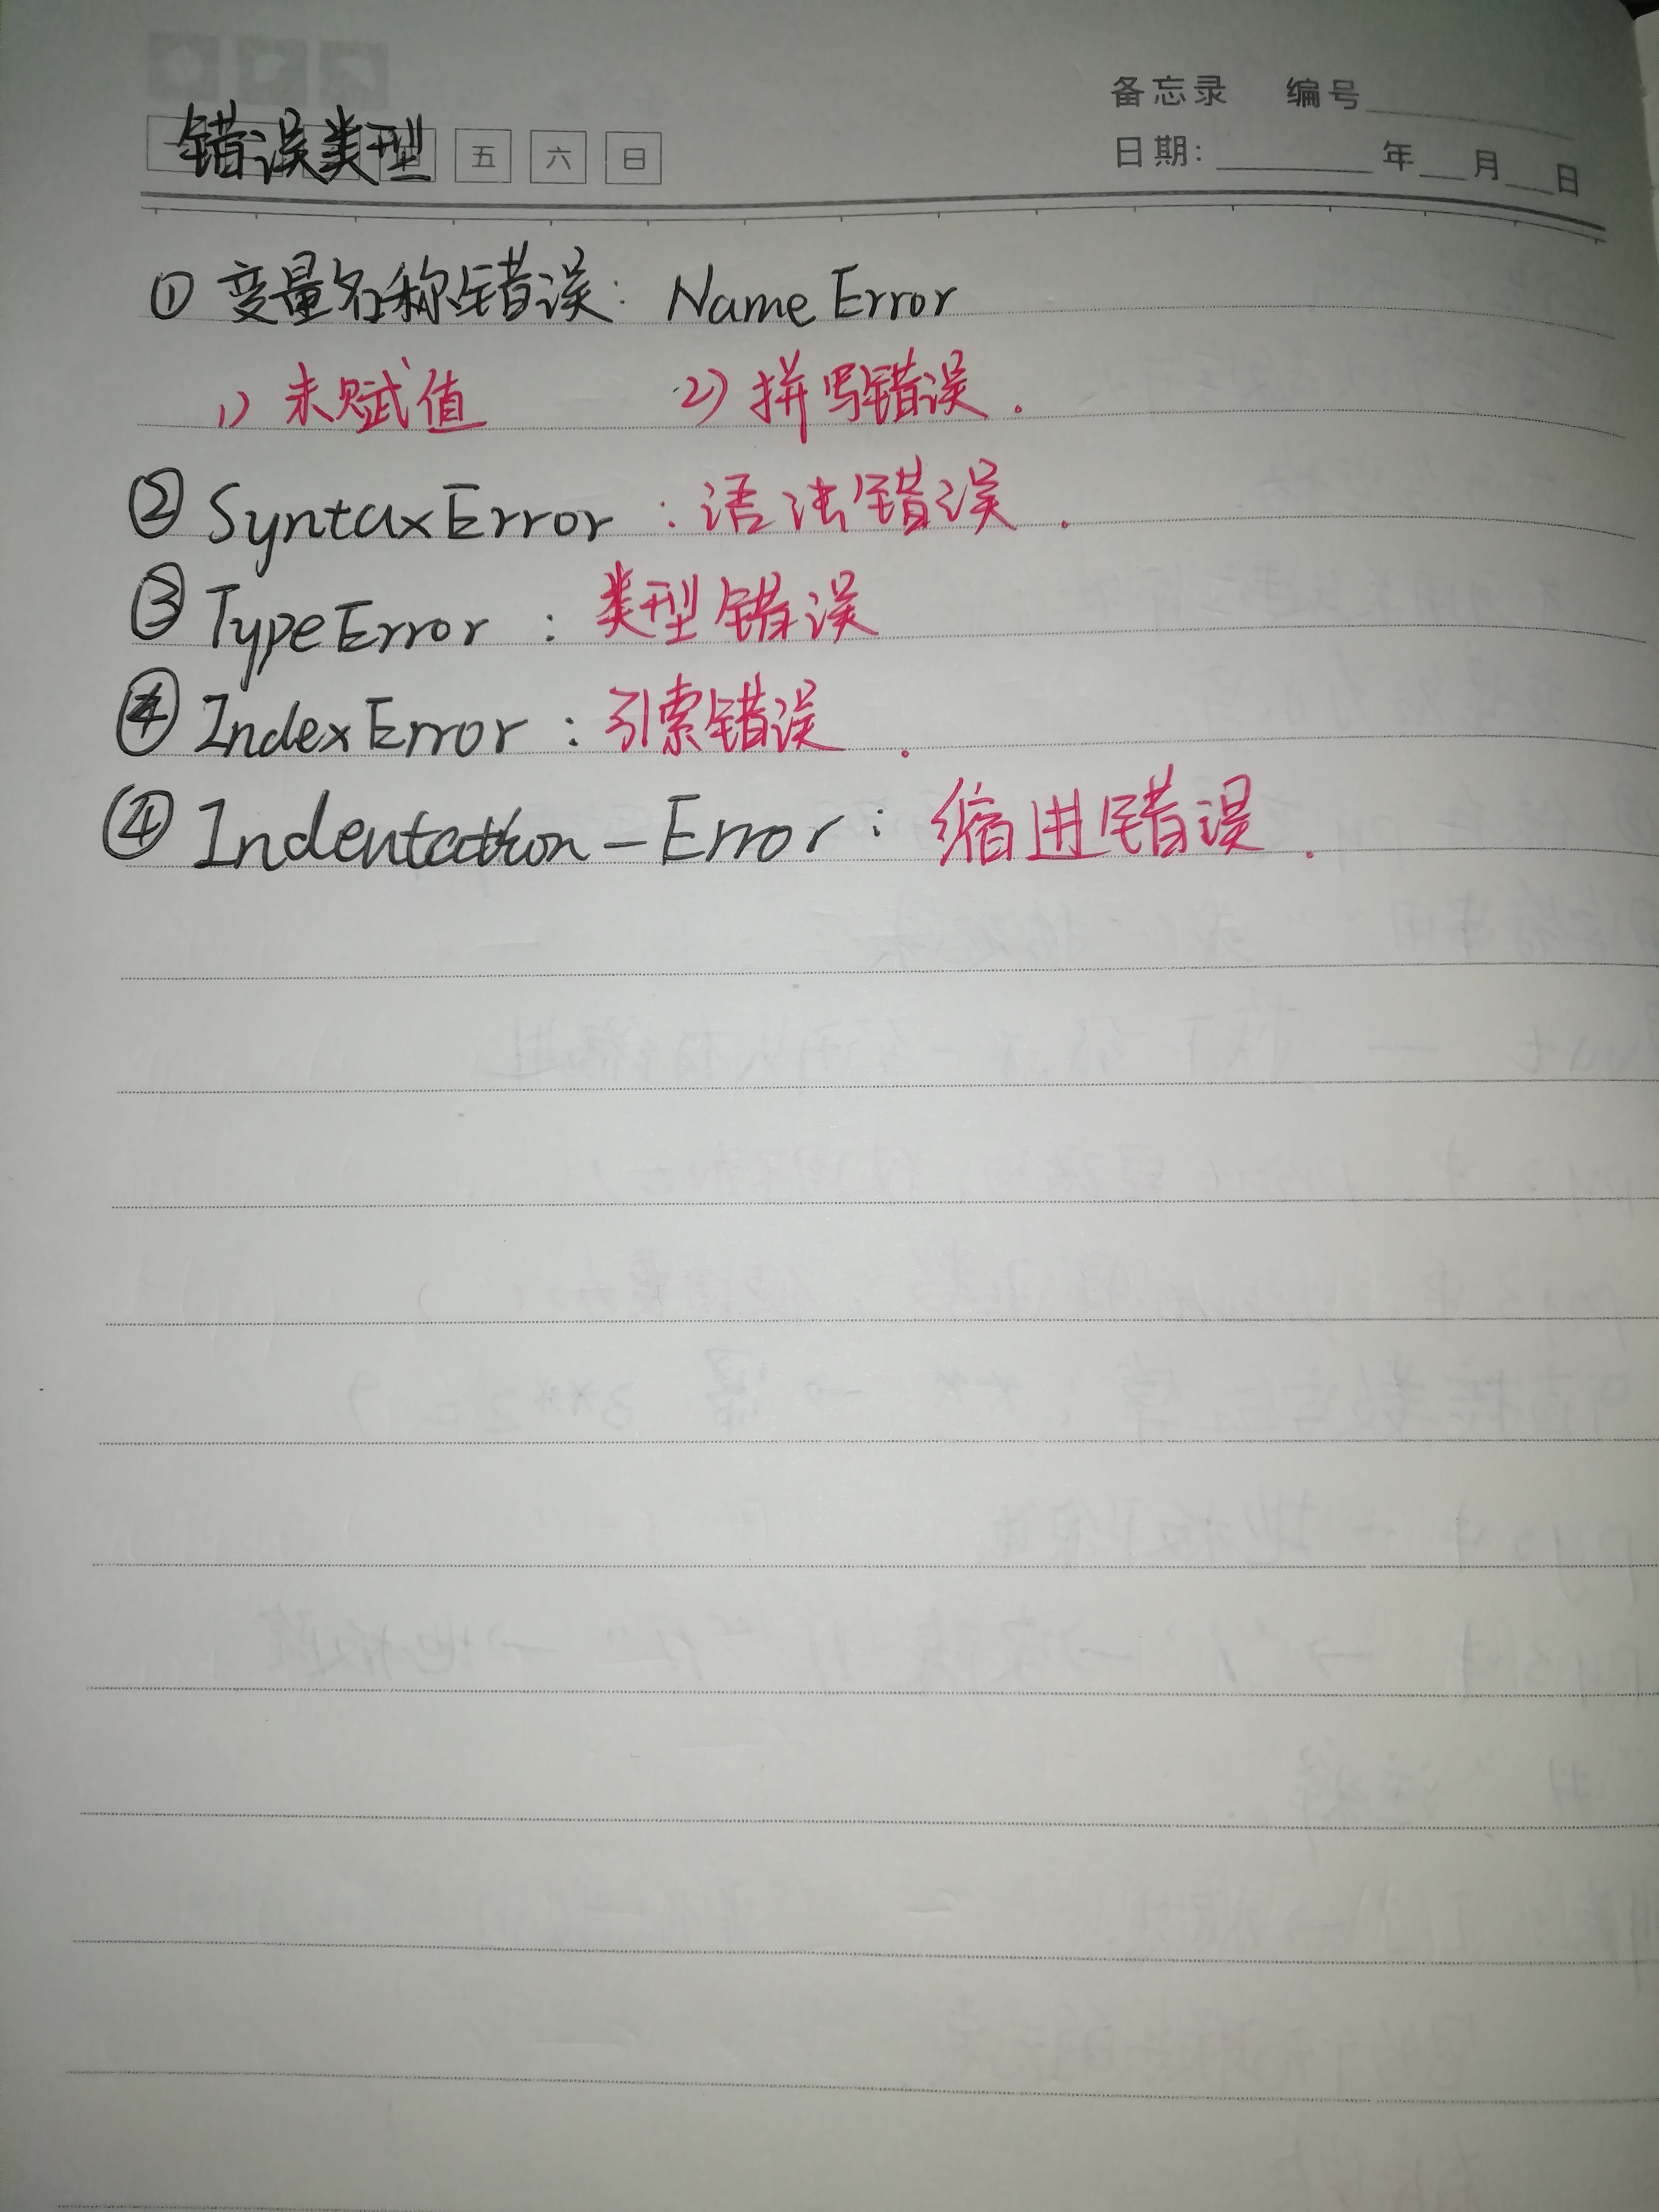 备忘录 编号
错误类型 五 六 日
日期: 年 月 日
① 变量名称错误: NameError
1) 未赋值 2) 拼写错误.
② SyntaxError : 语法错误.
③ TypeError : 类型错误
④ IndexError : 引索错误.
④ Indentation-Error : 缩进错误.